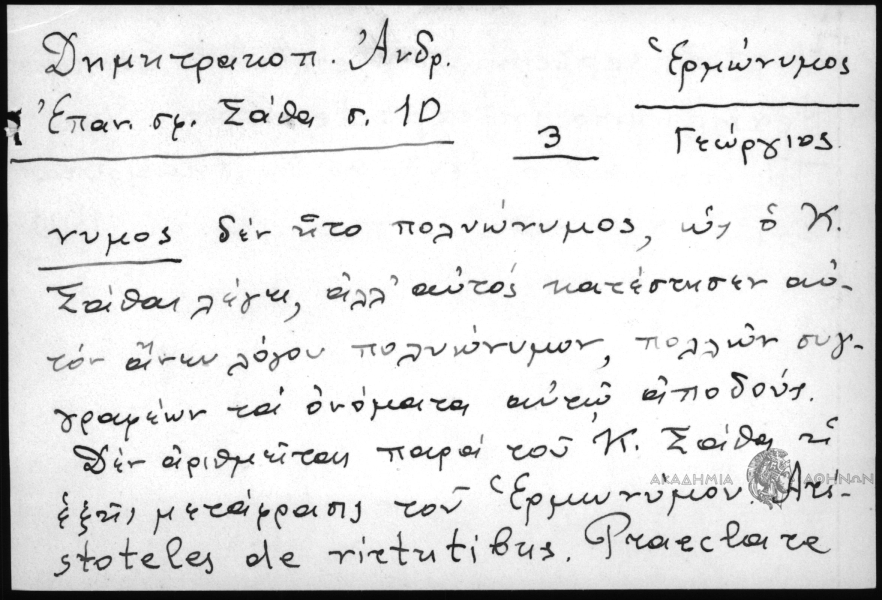 Δημητρακοπ. Ἀνδρ.
Ἐπαν. σφ. Σάθα σ. 10
3
Ἑρμώνυμος
Γεώργιος.
νυμος δέν ἦτο πολυώνυμος, ὡς ὁ Κ.
Σάθας λέγει, ἀλλ' αὐτός κατέστησεν αὐ-
τόν ἄνευ λόγου πολυώνυμον, πολλῶν συγ-
γραφέων τά ὀνόματα αὐτῷ ἀποδούς.
Δέν ἀριθμεῖται παρά τοῦ Κ. Σάθα ἡ
ἑξῆς μετάφρασις τοῦ Ἑρμωνύμου. Ari-
stoteles de virtutibus. Praeclare
ΑΚΑΔΗΜΙΑ ΑΘΗΝΩΝ